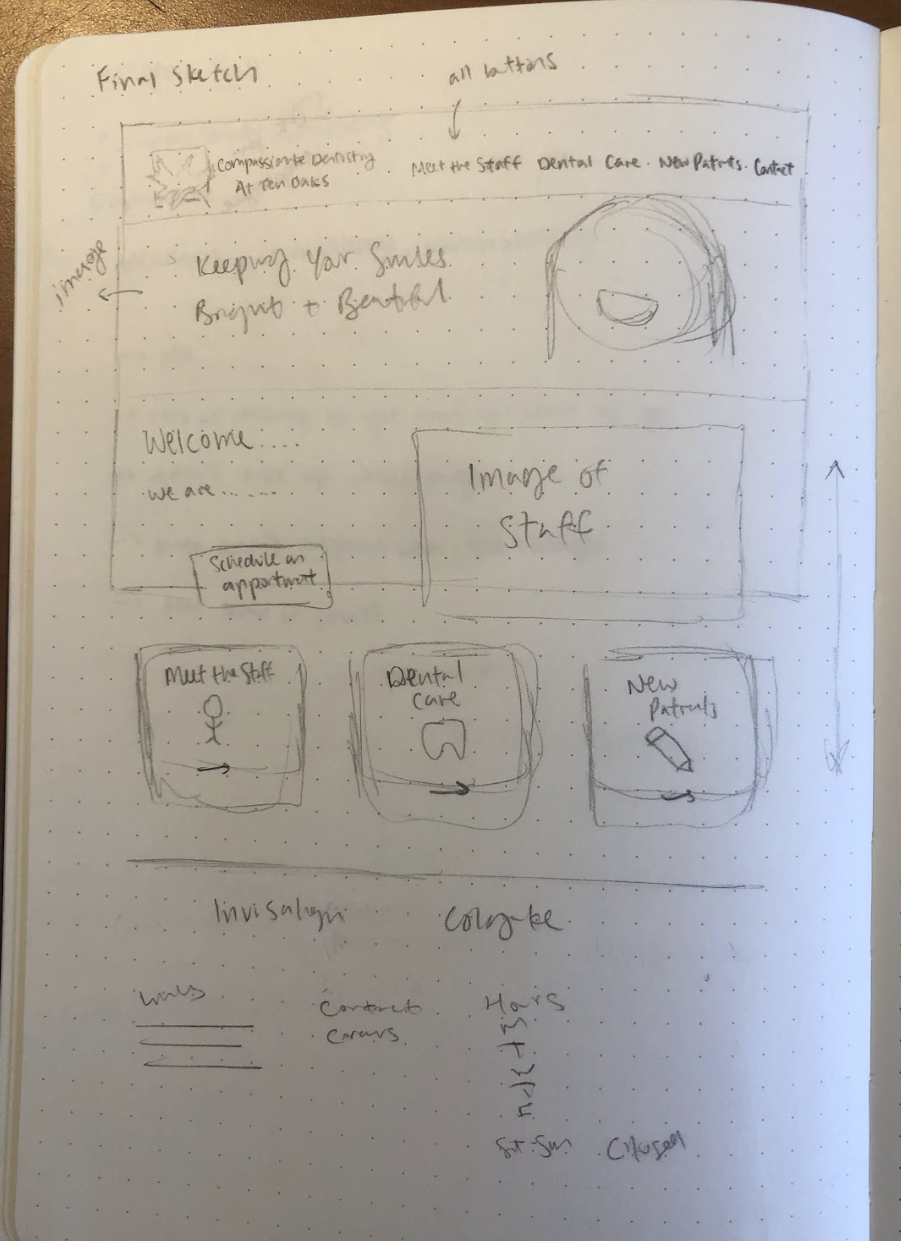 Final Sketch
all buttons
Compassionate Dentistry
At Ten Oaks
Meet the Staff Dental Care. New Patients. Contact
image
Keeping Your Smiles
Bright + Beautiful
Welcome....
we are......
Image of
Staff
Schedule an
appointment
Meet the Staff
Dental
Care
New
Patients
Invisalign Colgate
Links
Contact
Hours
M
T
W
F
Sat-Sun Closed